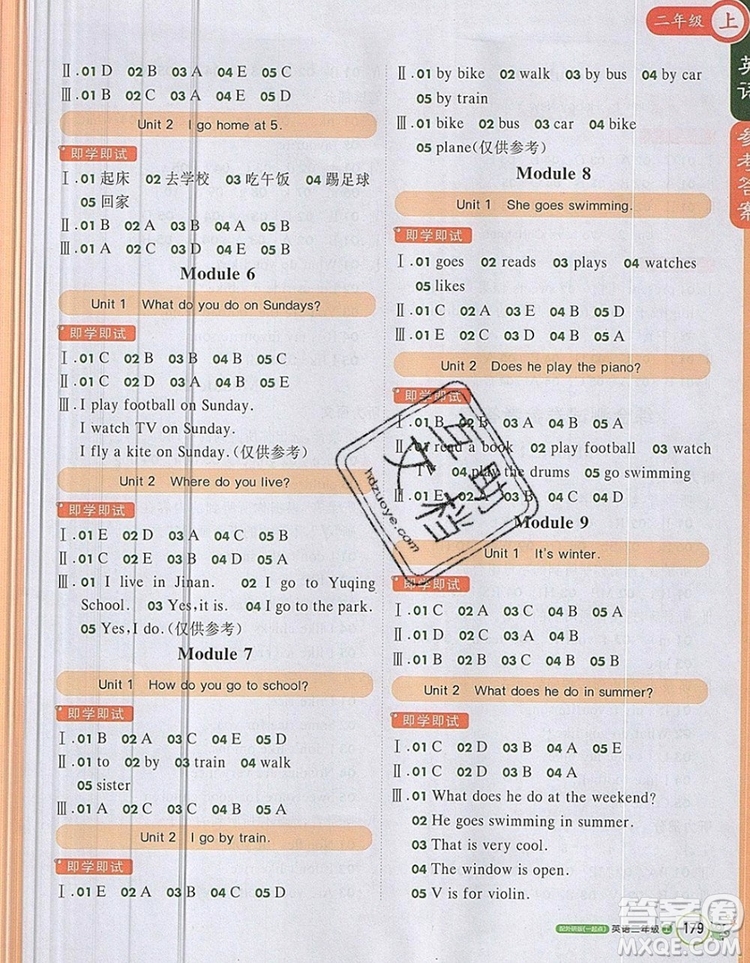 二年级 上
英语
参考答案
Ⅱ.01 D 02 B 03 A 04 E 05 C
Unit 2 I go home at 5.
即学即试
Ⅰ.01 起床 02 去学校 03 吃午饭 04 踢足球
05 回家
Ⅱ.01 B 02 A 03 A 04 B 05 B
Ⅲ.01 A 02 C 03 D 04 E 05 B
Module 6
Unit 1 What do you do on Sundays?
即学即试
Ⅰ.01 C 02 B 03 B 04 C 05 C
Ⅱ.01 C 02 B 03 A 04 E 05 D
Ⅲ.I play football on Sunday.
I watch TV on Sunday.
I fly a kite on Sunday.(仅供参考)
Unit 2 Where do you live?
即学即试
Ⅰ.01 E 02 D 03 A 04 C 05 B
Ⅱ.01 C 02 D 03 E 04 B 05 A
Ⅲ.01 I live in Jinan. 02 I go to Yuqing
School. 03 Yes,it is. 04 I go to the park.
05 Yes,I do.(仅供参考)
Module 7
Unit 1 How do you go to school?
即学即试
Ⅰ.01 B 02 A 03 C 04 E 05 D
Ⅱ.01 to 02 by 03 train 04 walk
05 sister
Ⅲ.01 A 02 A 03 B 04 B 05 A
Unit 2 I go by train.
即学即试
Ⅰ.01 E 02 D 03 A 04 C 05 B
Ⅱ.01 by bike 02 walk 03 by bus 04 by car
05 by train
Ⅲ.01 bike 02 bus 03 car 04 train
05 plane(仅供参考)
Module 8
Unit 1 She goes swimming.
即学即试
Ⅰ.01 goes 02 reads 03 plays 04 watches
05 likes
Ⅱ.01 C 02 A 03 E 04 B 05 D
Ⅲ.01 B 02 A 03 B 04 A 05 B
Unit 2 Does he play the piano?
即学即试
Ⅰ.01 B 02 B 03 A 04 B 05 A
Ⅱ.01 read a book 02 play football 03 watch
TV 04 play the drums 05 go swimming
Ⅲ.01 E 02 A 03 C 04 B 05 D
Module 9
Unit 1 It's winter.
即学即试
Ⅰ.01 B 02 C 03 A 04 E 05 D
Ⅱ.01 A 02 A 03 B 04 B 05 B
Ⅲ.01 D 02 A 03 B 04 E 05 C
Unit 2 What does he do in summer?
即学即试
Ⅰ.01 C 02 D 03 B 04 A 05 E
Ⅱ.01 A 02 B 03 B 04 A 05 B
Ⅲ.01 What does he do at the weekend?
02 He goes swimming in summer.
03 That is very cool.
04 The window is open.
05 V is for violin.
互助文档
hdzuoye.com
配外研版(一起点) 英语二年级 上 179